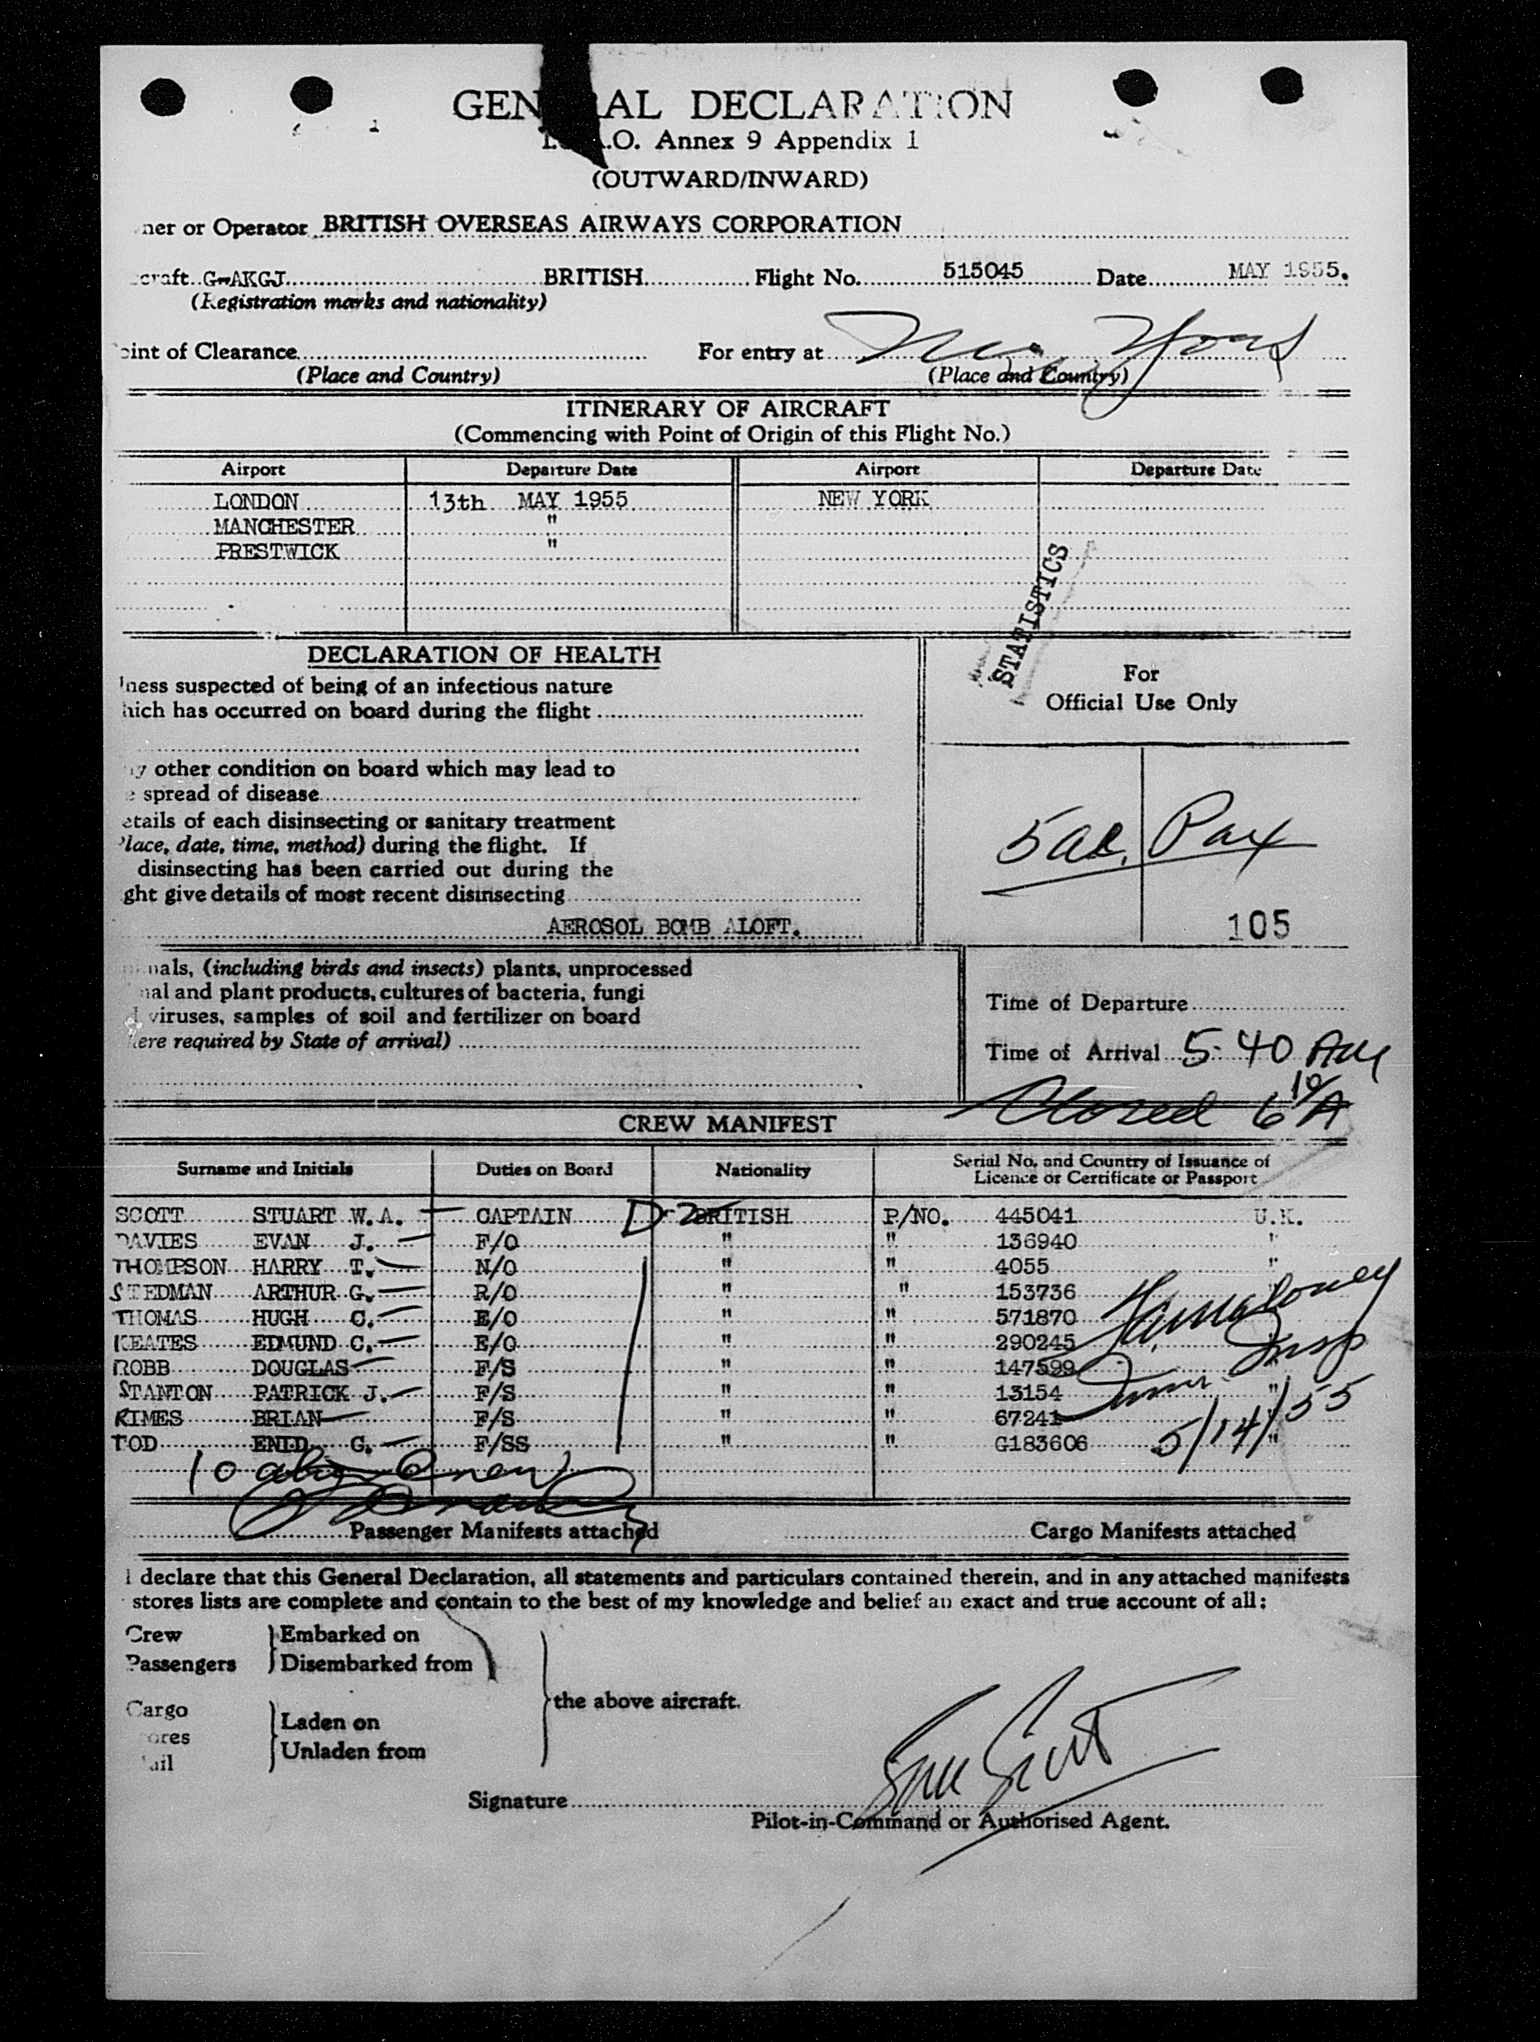 GEN AL DECLARATION
.O. Annex 9 Appendix 1
(OUTWARD/INWARD)
ner or Operator BRITISH OVERSEAS AIRWAYS CORPORATION
craft G-AKGJ BRITISH Flight No. 515045 Date MAY 1955.
(Registration marks and nationality)
oint of Clearance For entry at New York
(Place and Country) (Place and Country)
ITINERARY OF AIRCRAFT
(Commencing with Point of Origin of this Flight No.)
Airport Departure Date Airport Departure Date
LONDON 13th MAY 1955 NEW YORK
MANCHESTER "
PRESTWICK "
STATISTICS
DECLARATION OF HEALTH
lness suspected of being of an infectious nature
hich has occurred on board during the flight
For
Official Use Only
y other condition on board which may lead to
e spread of disease
etails of each disinsecting or sanitary treatment
Place, date, time, method) during the flight. If
disinsecting has been carried out during the
ght give details of most recent disinsecting
AEROSOL BOMB ALOFT.
5 Pax
105
nals, (including birds and insects) plants, unprocessed
nal and plant products, cultures of bacteria, fungi
d viruses, samples of soil and fertilizer on board
here required by State of arrival)
Time of Departure
Time of Arrival 5-40 AM
Closed 6 10/A
CREW MANIFEST
Surname and Initials Duties on Board Nationality Serial No. and Country of Issuance of
Licence or Certificate or Passport
SCOTT STUART W.A. CAPTAIN D-2 BRITISH P/NO. 445041 U.K.
DAVIES EVAN J. F/O " " 136940 "
THOMPSON HARRY T. N/O " " 4055 "
STEDMAN ARTHUR G. R/O " " 153736
THOMAS HUGH C. E/O " " 571870
KEATES EDMUND C. E/O " " 290245
ROBB DOUGLAS F/S " " 147599
STANTON PATRICK J. F/S " " 13154 "
RIMES BRIAN F/S " " 67241
TOD ENID G. F/SS " " G183606 "
Insp
5/14/55
10 alien Crew
Passenger Manifests attached Cargo Manifests attached
I declare that this General Declaration, all statements and particulars contained therein, and in any attached manifests
stores lists are complete and contain to the best of my knowledge and belief an exact and true account of all:
Crew Embarked on
Passengers Disembarked from
the above aircraft.
Cargo
ores
ail
Laden on
Unladen from
Signature
Pilot-in-Command or Authorised Agent.